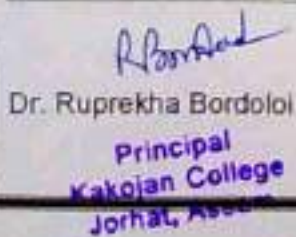 RBordoloi
Dr. Ruprekha Bordoloi
Principal
Kakojan College
Jorhat, Assam